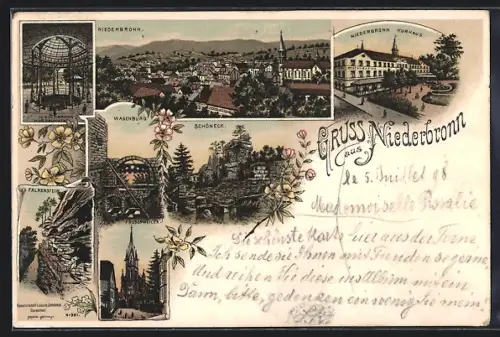 NIEDERBRONN.
NIEDERBRONN KURHAUS.
WASENBURG
SCHÖNECK.
GRUSS aus Niederbronn
FALKENSTEIN
FROSCHWEILER.
le 5 Juillet 98
Mademoiselle Rosalie
Die schönste Karte hier aus der Ferne
Ich sende sie Ihnen mit Freuden so gerne,
Und reihen Sie diese ins Album mir ein
Dann, bitte, gedenken ein wenig Sie mein!